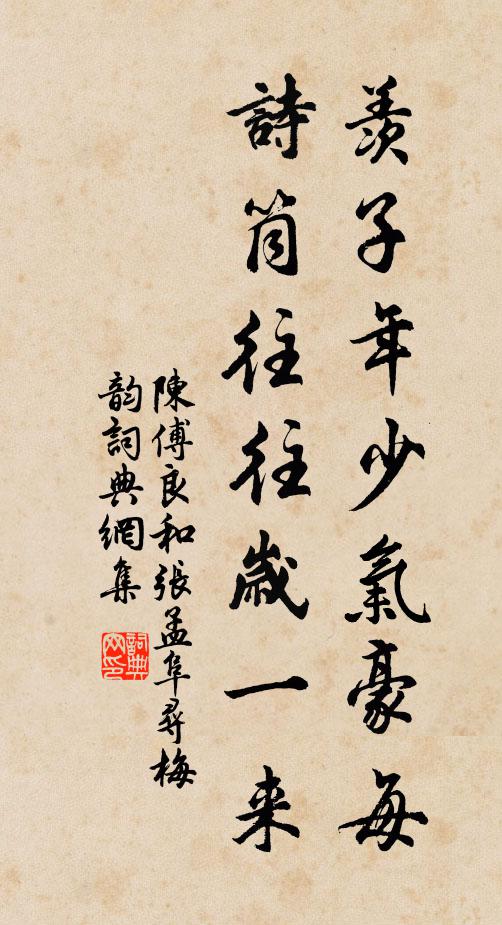 羨子年少氣豪每
詩筒往往歲一来
陳傅良和張孟阜尋梅
韵詞典網集
詞典网印